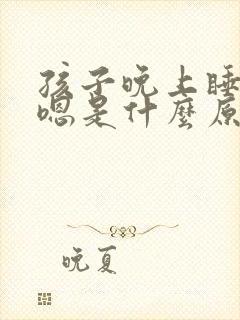 孩子晚上睡
嗯是什麼原
晚夏